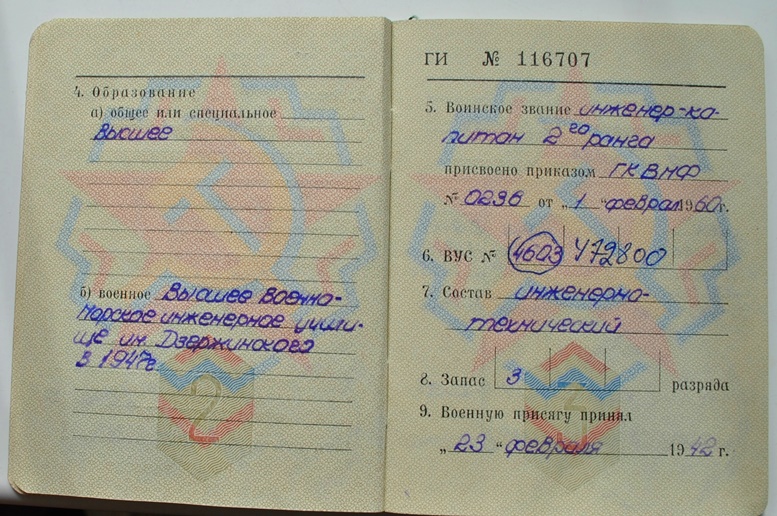 4. Образование
а) общее или специальное
Высшее
б) военное Высшее Военно-
Морское инженерное учили-
ще им. Дзержинского
в 1947г.
2
ГИ № 116707
5. Воинское звание инженер-ка-
питан 2го ранга
присвоено приказом ГК ВМФ
№ 0296 от „1“ феврал 1960 г.
6. ВУС № 4603 472800
7. Состав инженерно-
технический
8. Запас 3 разряда
9. Военную присягу принял
„23“ февраля 1942 г.
3